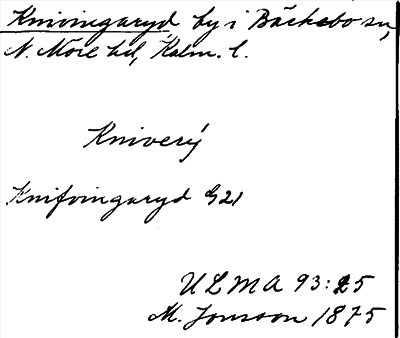 Knivingaryd by i Bäckebo sn,
N. Möre hd, Kalm. l.
Kniverÿ
Knifvingaryd G21
ULMA 93:25
M. Jonsson 1875